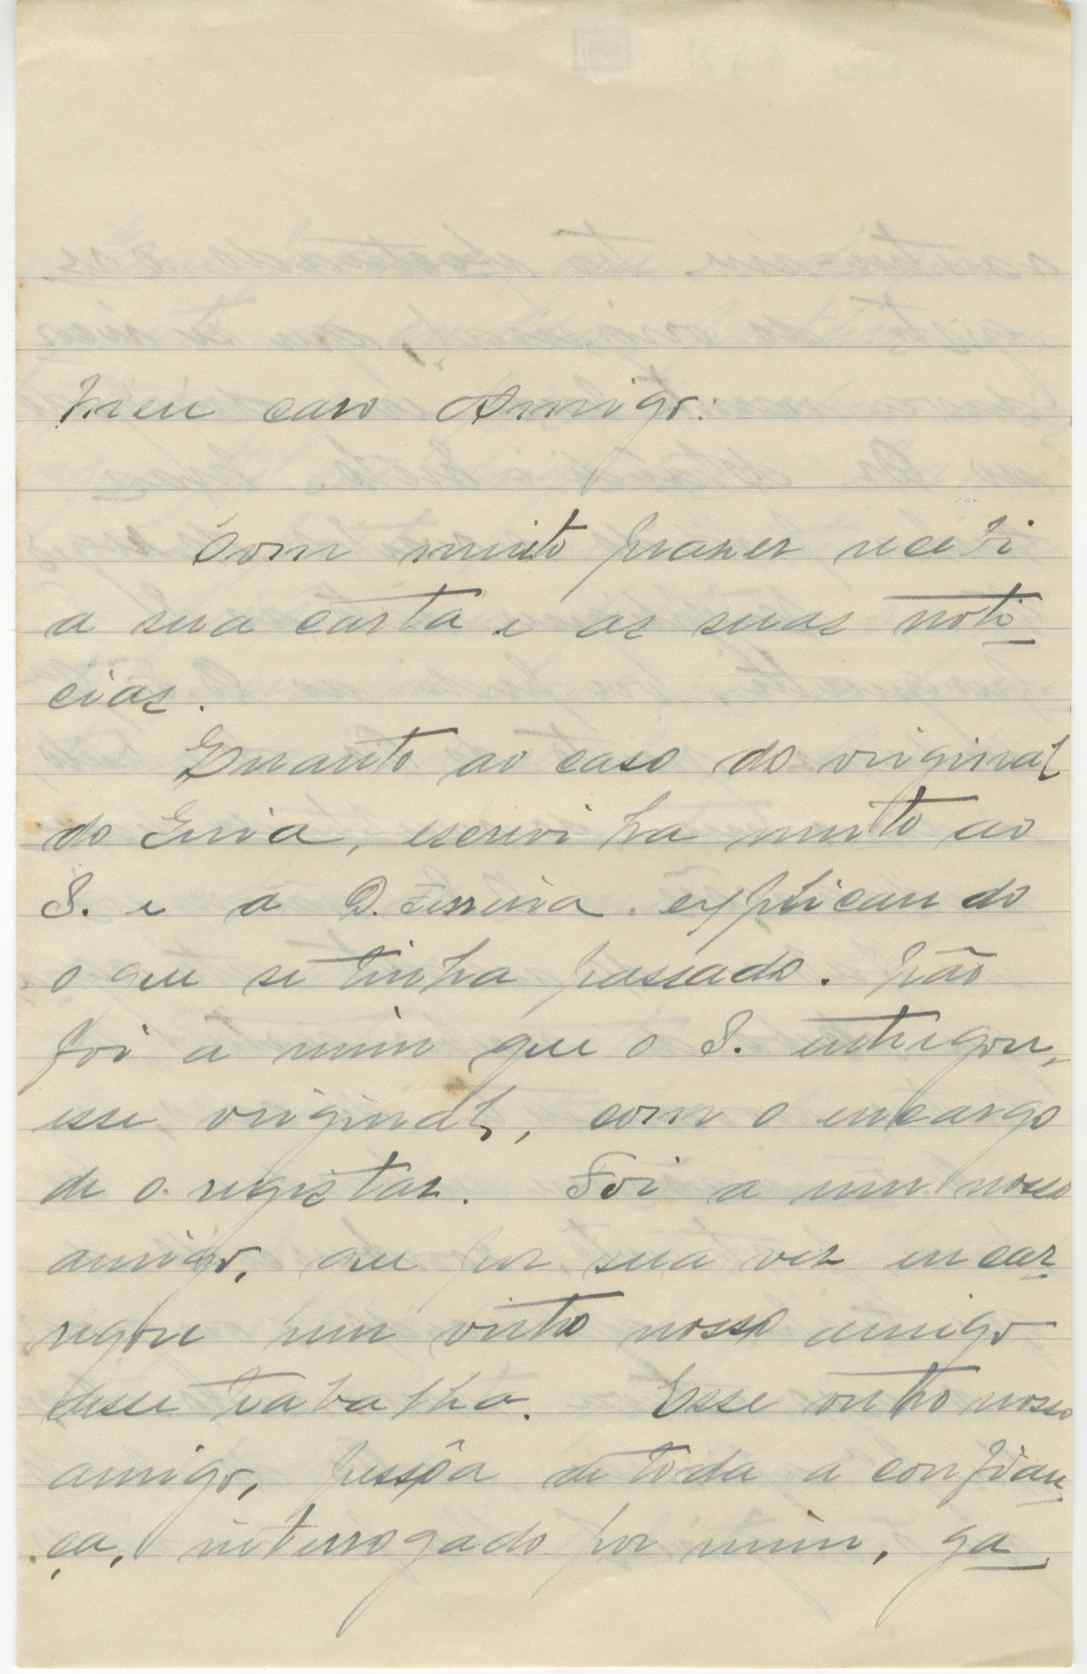 Meu caro Amigo:
Com muito prazer recebi
a sua carta e as suas noti
cias.
Quanto ao caso do original
do Guia, escrevi ha muito ao
S. e a D. explicando
o que se tinha passado. Não
foi a mim que o S. entregou,
esse original, com o encargo
de o registar. Foi a um nosso
amigo, que por sua vez encar
regou um outro nosso amigo
desse trabalho. Esse outro nosso
amigo, pessôa de toda a confian
ça, interrogado por mim, ga